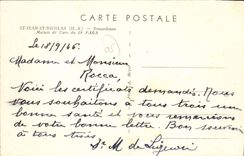 CARTE POSTALE
ST-JEAN-ST-NICOLAS (H.-A.) - Sanatorium
Maison de Cure du Dr PARA
Le 18/9/46.
Madame et Monsieur
Rocca,
Voici les certificats demandés. Nous
vous souhaitons à tous trois une
bonne santé et vous remercions
de votre bonne lettre. Bon souvenir
à tous trois
Sr M de